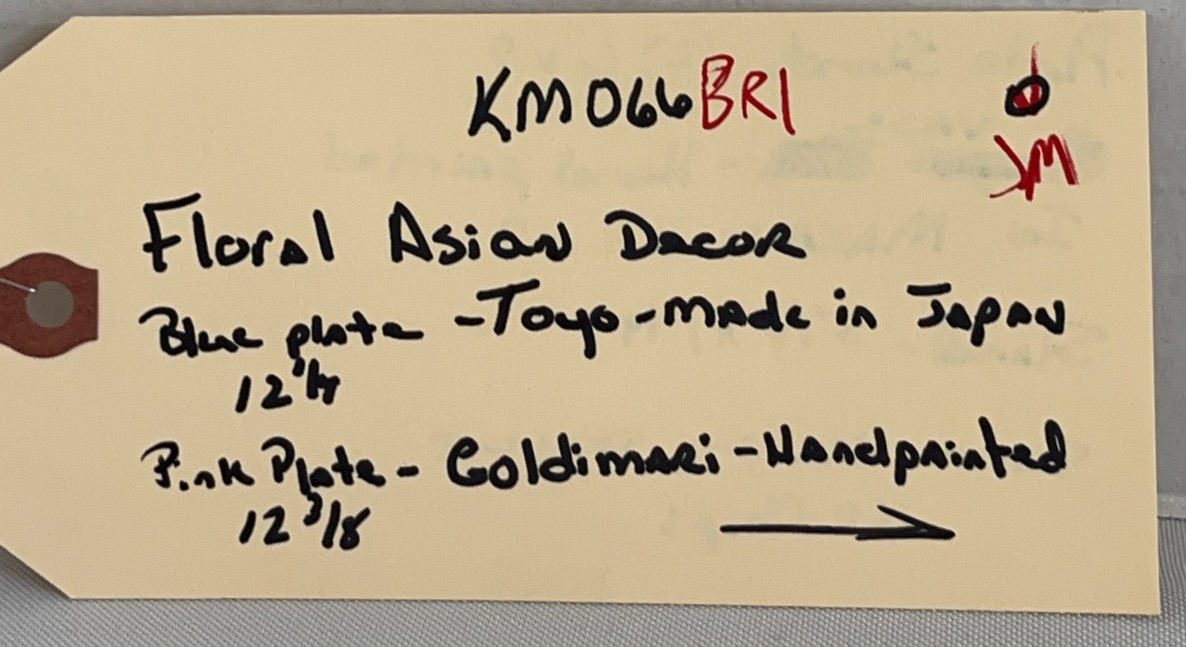 KM066BR1
JM
Floral Asian Decor
Blue plate - Toyo - made in Japan
12 1/4
Pink Plate - Goldimari - Handpainted
12 3/8